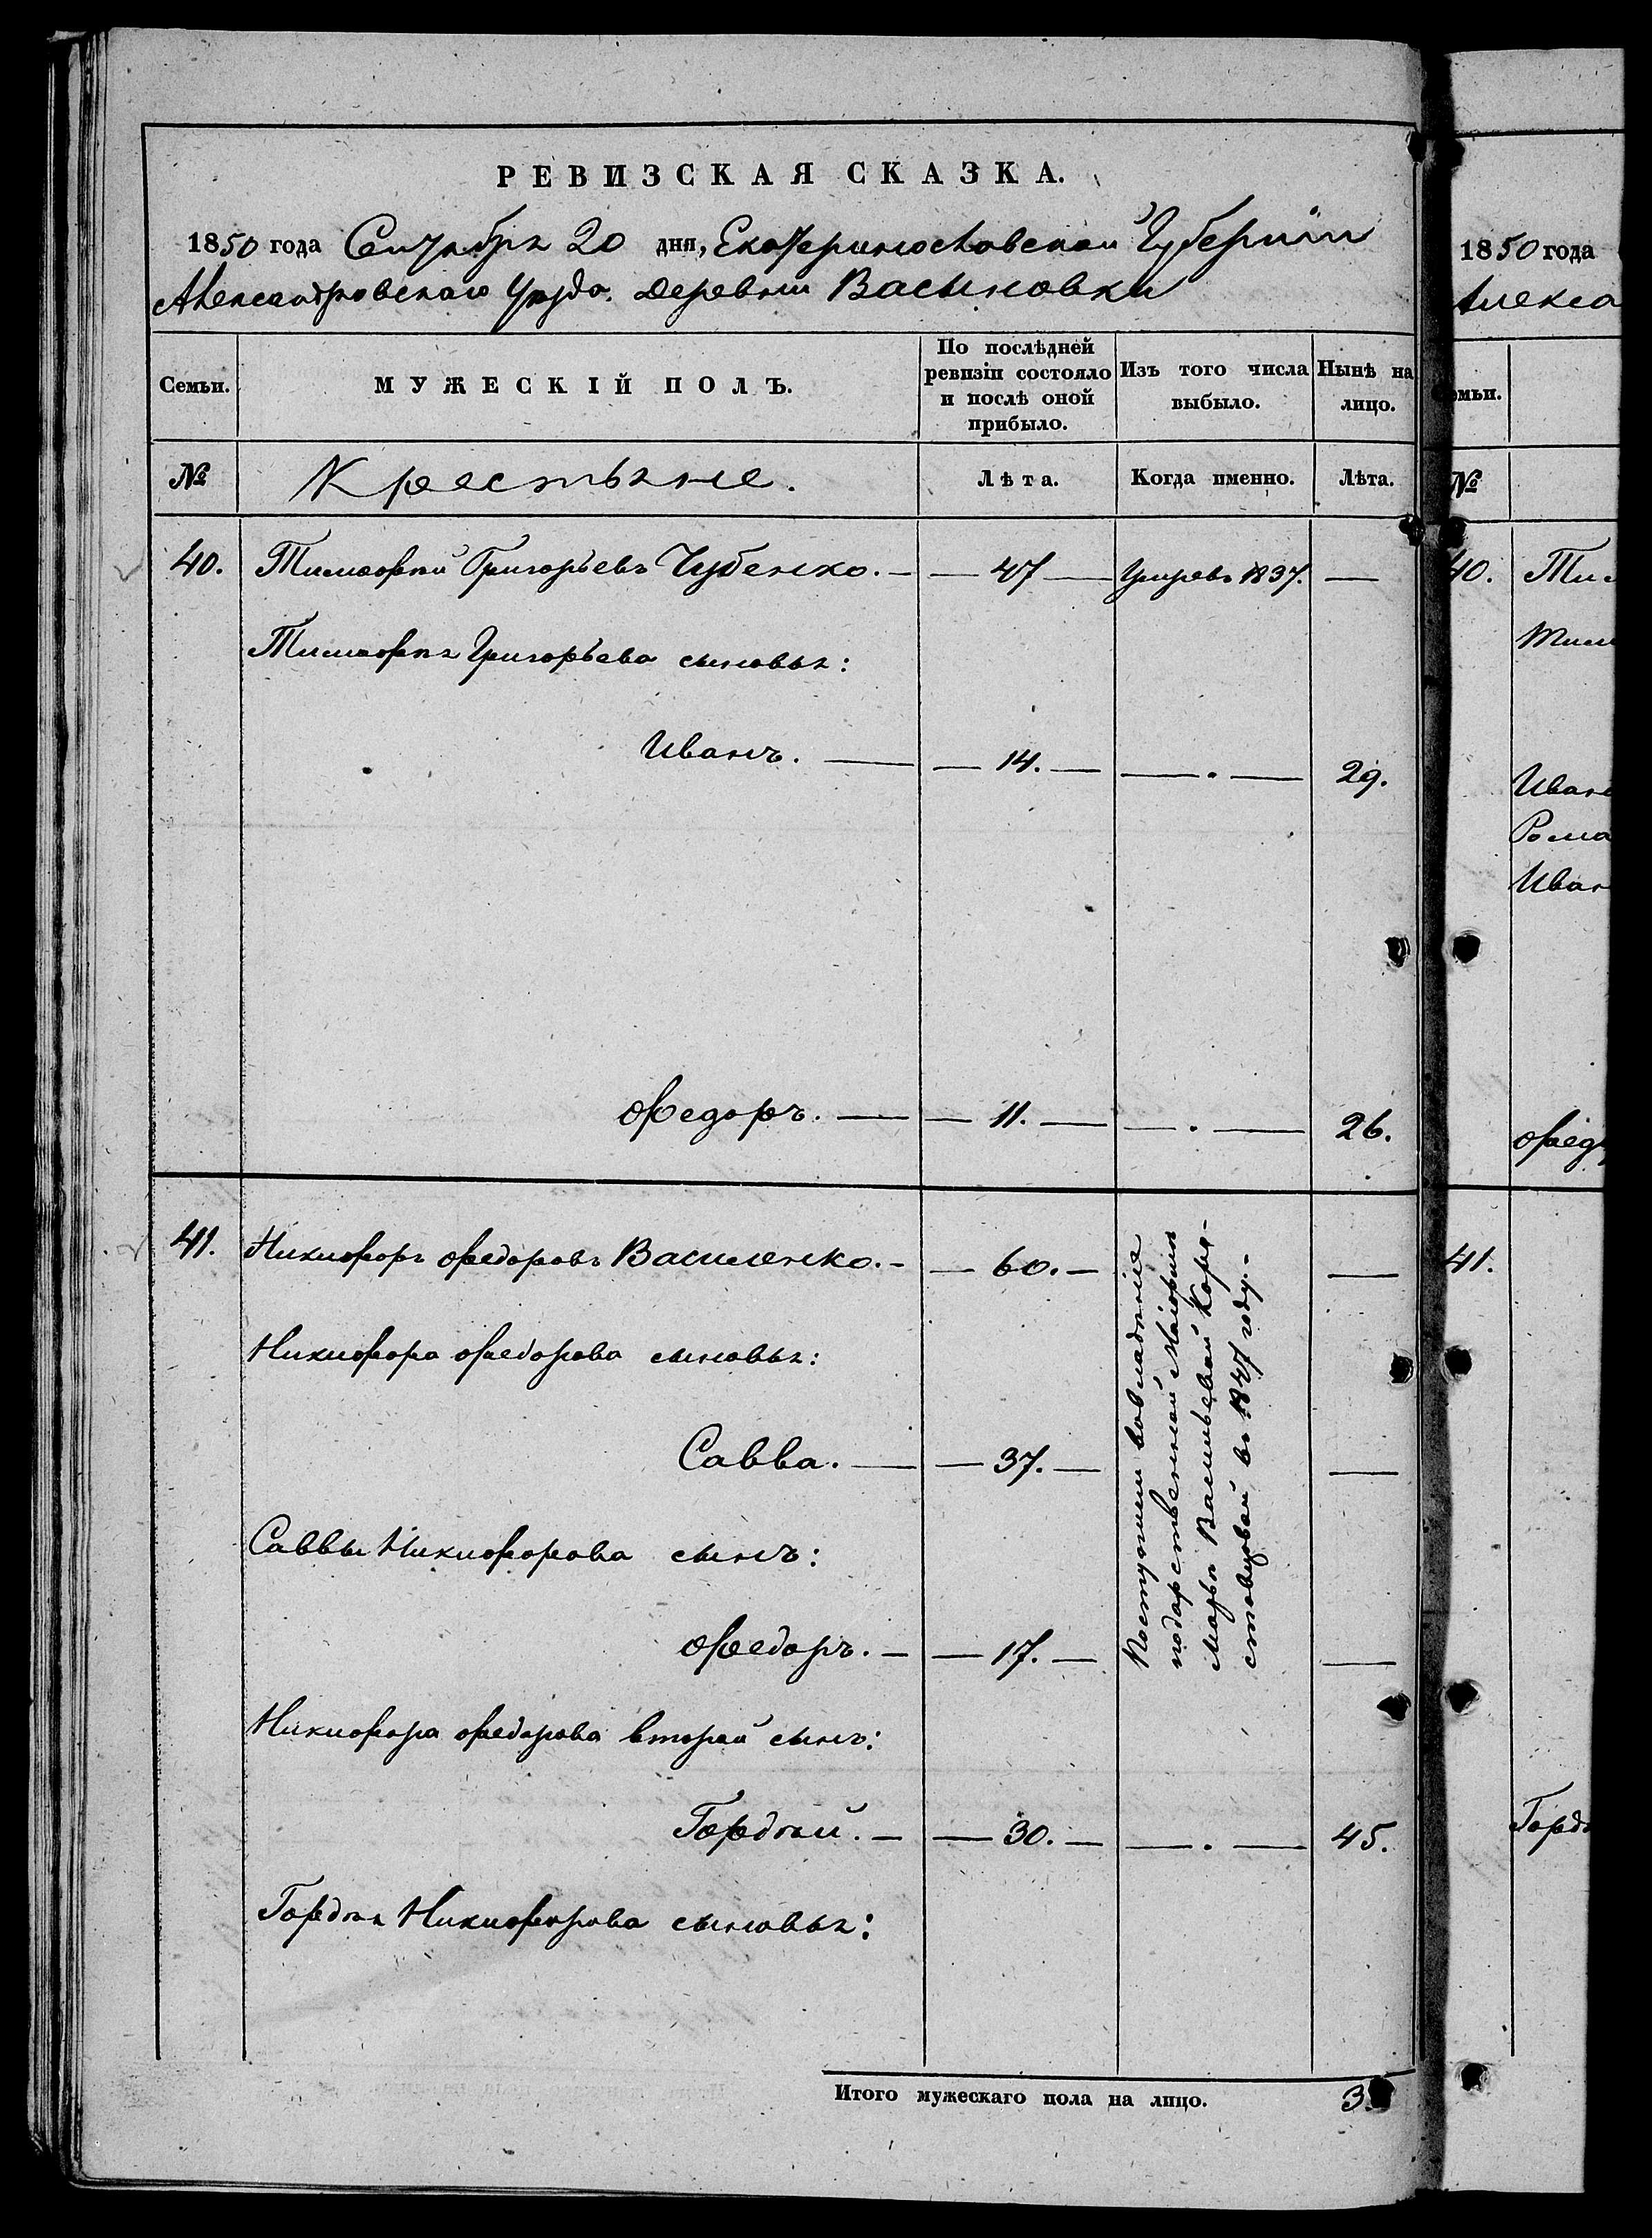 РЕВИЗСКАЯ СКАЗКА.
1850 года Сентября 20 дня, Екатеринославской Губернии
Александровского Уезда. деревни Васиновки
Семьи.
МУЖЕСКІЙ ПОЛЪ.
По послѣдней ревизіи состояло и послѣ оной прибыло.
Изъ того числа выбыло.
Нынѣ на лицо.
№ Крестьяне. Лѣта. Когда именно. Лѣта.
40. Тимофей Григорьевъ Чубенко. — — 47 — Умеръ 1837. —
Тимофея Григорьева сыновья:
Иванъ. — — 14. — — . — 29.
Федоръ. — — 11. — — . — 26.
41. Никифоръ Федоровъ Василенко. — — 60. — —
Никифора Федорова сыновья:
Савва. — — 37. — —
Саввы Никифорова сынъ:
Федоръ. — — 17. — —
Поступили во владѣніе
подарственной Маіорши
Марьи Васильевой Кора-
стовцовой въ 1847 году. —
Никифора Федорова второй сынъ:
Гордѣй. — — 30. — — . — 45.
Гордѣя Никифорова сыновья:
Итого мужескаго пола на лицо. 3.
1850 года
Алекса
емьи.
№
40. Тим
Тим
Иван
Рома
Иван
Федо
41.
Горд